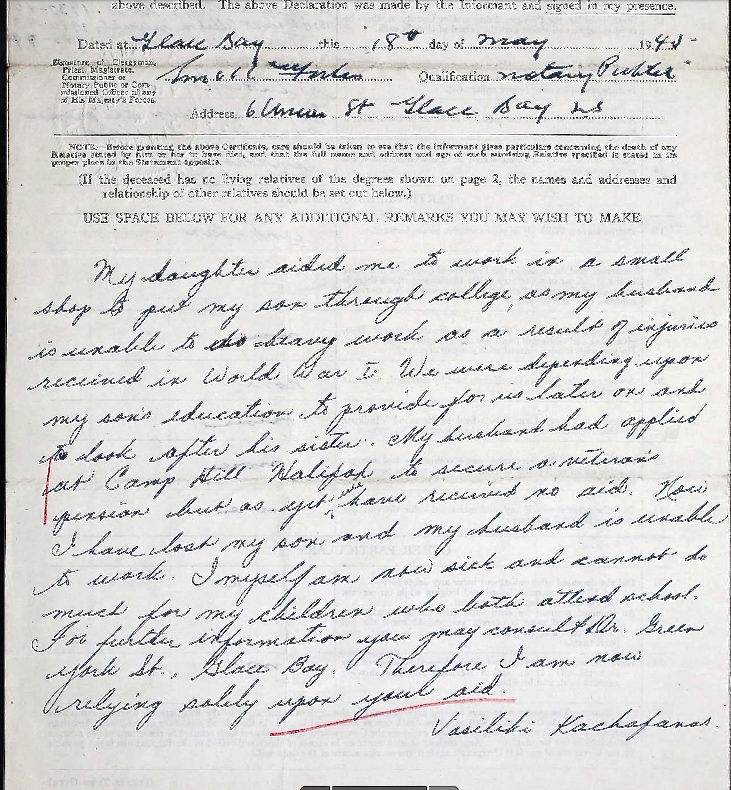 above described. The above Declaration was made by the Informant and signed in my presence.
Dated at Glace Bay this 18th day of May 194
Signature of Clergyman,
Priest, Magistrate,
Commissioner or
Notary Public or Com-
missioned Officer of any
of His Majesty's Forces.
Qualification Notary Public
Address 6 Union St Glace Bay NS
NOTE.—Before granting the above Certificate, care should be taken to see that the informant gives particulars concerning the death of any
Relative stated by him or her to have died, and that the full name and address and age of each surviving Relative specified is stated in its
proper place in the Statement opposite.
(If the deceased has no living relatives of the degrees shown on page 2, the names and addresses and
relationship of other relatives should be set out below.)
USE SPACE BELOW FOR ANY ADDITIONAL REMARKS YOU MAY WISH TO MAKE
My daughter aided me to work in a small
shop to put my son through college, as my husband
is unable to do heavy work as a result of injuries
received in World War I. We were depending upon
my son's education to provide for us later on and
to look after his sister. My husband had applied
at Camp Hill Halifax to secure a veteran's
pension but as yet we have received no aid. Now
I have lost my son and my husband is unable
to work. I myself am now sick and cannot do
much for my children who both attend school.
For further information you may consult Dr. Green
York St., Glace Bay. Therefore I am now
relying solely upon your aid.
Vasiliki Kachafanas.